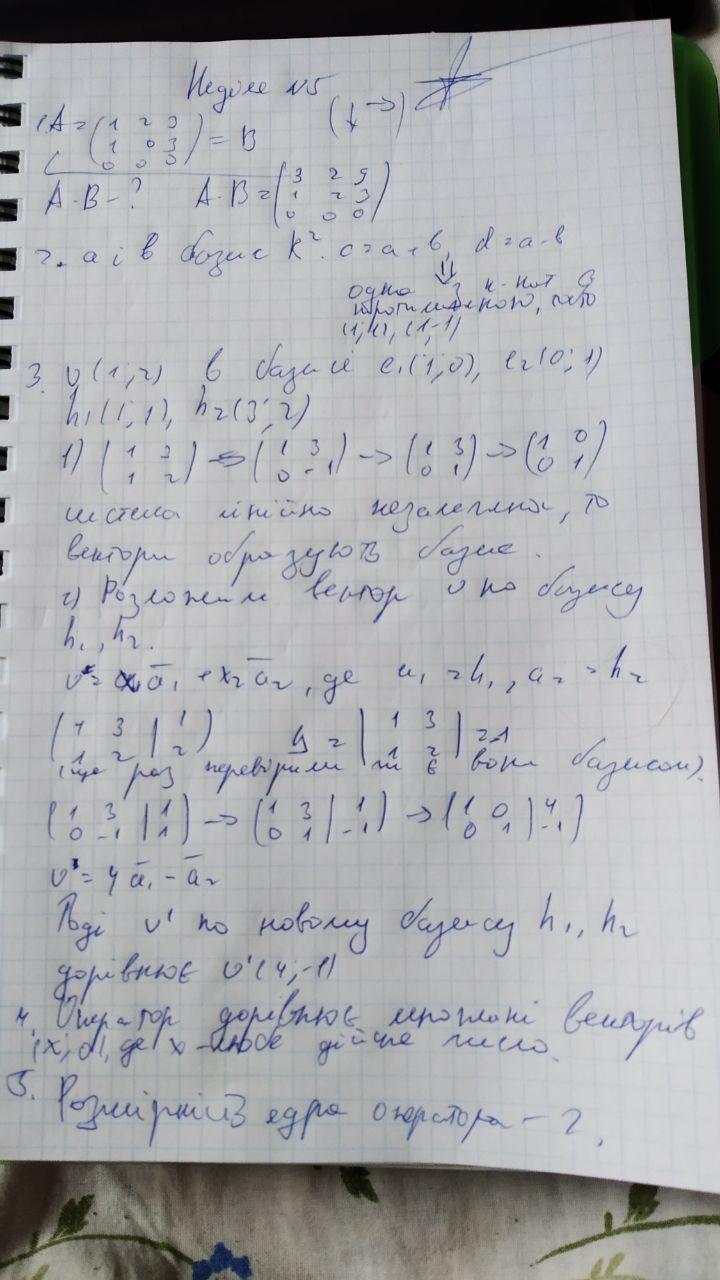 Неділе №5
1 A = (1 2 3
1 0 3
0 0 3) = B (↓→)
A·B-? A·B = (3 2 9
1 2 3
0 0 0)
2. a і b базис K². c=a+b, d=a-b
⇓
одна з к-нат є
(1,1), (1,-1)
3. υ(1;2) в базисі e₁(1;0), e₂(0;1)
h₁(1;1), h₂(3;2)
1) (1 3
1 2) → (1 3
0 -1) → (1 3
0 1) → (1 0
0 1)
система лінійно незалежна, то
вектори образують базис.
2) Розложим вектор υ по базису
h₁, h₂.
υ = x₁ā₁ + x₂ā₂, де a₁ = h₁, a₂ = h₂
(1 3 | 1
1 2 | 2) = |1 3
1 2|
(ще раз перевірили чи є вони базисом).
(1 3 | 1
0 -1 | 1) → (1 3 | 1
0 1 | -1) → (1 0 | 4
0 1 | -1)
υ' = 4ā₁ - ā₂
Тоді υ' по новому базису h₁, h₂
дорівнює υ'(4;-1)
4. Оператор дорівнює множині векторів
(x; 0), де x - любе дійсне число.
5. Розмірність ядра оператора - 2.